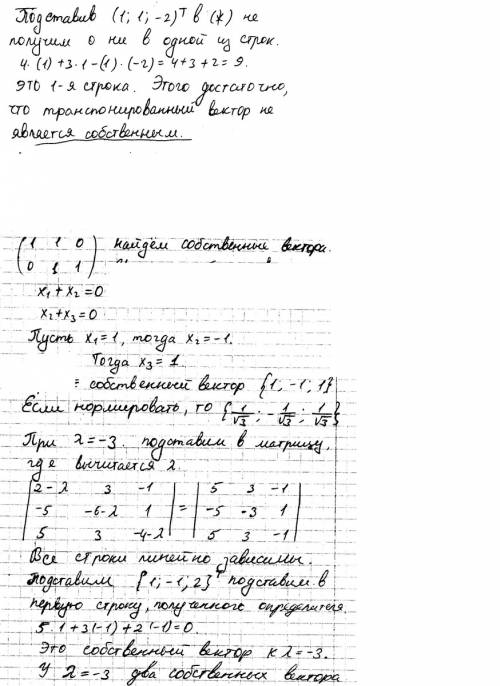 Подставив (1; 1; -2)ᵀ в (*) не
получим 0 ни в одной из строк.
4·(1)+3·1-(1)·(-2)=4+3+2=9.
это 1-я строка. Этого достаточно,
что транспонированный вектор не
является собственным.
(1 1 0
0 1 1) найдём собственные вектора.
x₁+x₂=0
x₂+x₃=0
Пусть x₁=1, тогда x₂=-1.
Тогда x₃=1
собственный вектор {1; -1; 1}
Если нормировать, то {1/√3; -1/√3; 1/√3}
При λ=-3 подставим в матрицу,
где вычитается λ.
|2-λ 3 -1| |5 3 -1|
|-5 -6-λ 1| = |-5 -3 1|
|5 3 -4-λ| |5 3 -1|
Все строки линейно зависимы.
Подставим {1; -1, 2}ᵀ подставим в
первую строку, полученного определителя
5·1+3(-1)+2(-1)=0.
Это собственный вектор к λ=-3.
У λ=-3 два собственных вектора